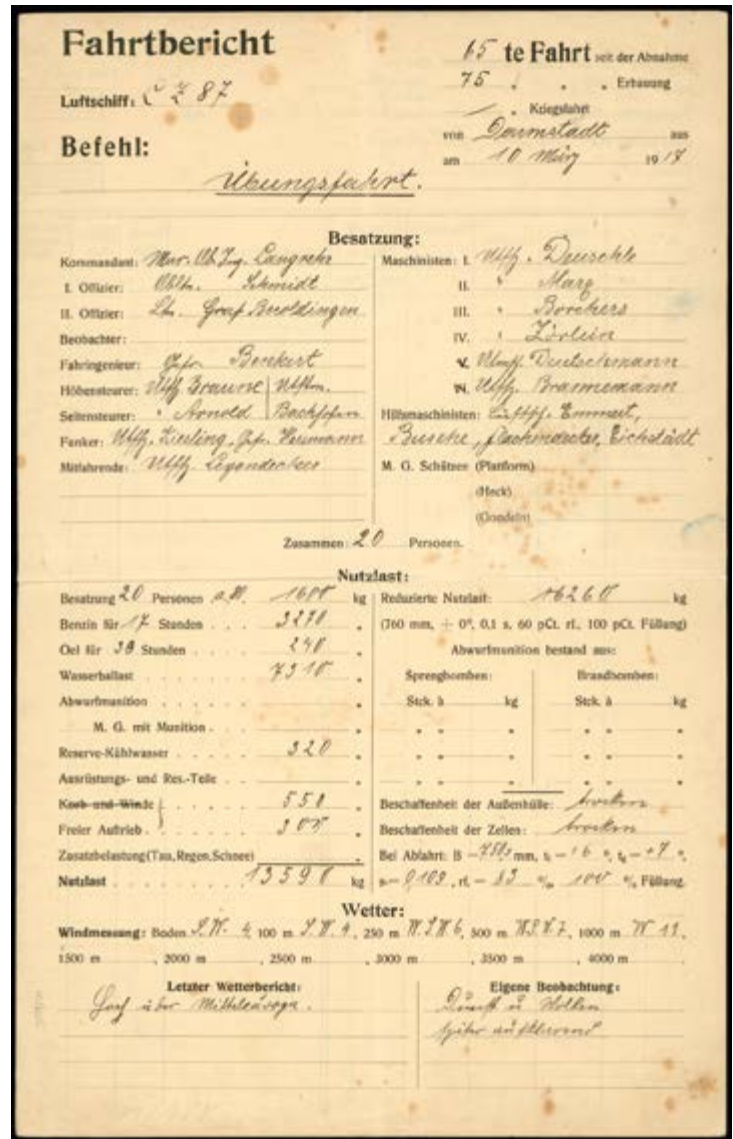 Fahrtbericht
65 te Fahrt seit der Abnahme
75 " " Erbauung
Luftschiff: L Z 87
— " Kriegsfahrt
von Darmstadt aus
Befehl:
am 10 März 1917
Übungsfahrt.
Besatzung:
Kommandant: Mar. Ob. Ing. Langrehr
I. Offizier: Obltn. Schmidt
II. Offizier: Ltn. Graf Beroldingen
Beobachter:
Fahringenieur: Gefr. Benkert
Höhensteurer: Utffz. Braune Utffz.
Seitensteurer: " Arnold Bachofen
Funker: Utffz. Kiesling, Gefr. Heumann
Mitfahrende: Utffz.
Maschinisten: I. Utffz. Deuschle
II. " Marg
III. " Borchers
IV. " Zörlein
V. Deutschmann
VI. Utffz. Brannemann
Hilfsmaschinisten: Luftsch. Emmert,
Busche, Eichstädt
M. G. Schützen (Plattform)
(Heck)
(Gondeln)
Zusammen: 20 Personen.
Nutzlast:
Besatzung 20 Personen 1600 kg
Benzin für 17 Stunden 3270 "
Oel für 30 Stunden 240 "
Wasserballast 7310 "
Abwurfmunition "
M. G. mit Munition "
Reserve-Kühlwasser 320 "
Ausrüstungs- und Res.-Teile "
Korb und Winde 550 "
Freier Auftrieb 300 "
Zusatzbelastung (Tau, Regen, Schnee) "
Nutzlast 13590 kg
Reduzierte Nutzlast: 16260 kg
(760 mm, + 0°, 0,1 s, 60 pCt. rl., 100 pCt. Füllung)
Abwurfmunition bestand aus:
Sprengbomben: Brandbomben:
Stck. à kg Stck. à kg
" " " " " "
" " " " " "
" " " " " "
Beschaffenheit der Außenhülle: trocken
Beschaffenheit der Zellen: trocken
Bei Abfahrt: B = mm, +6 °, +7 °,
s = 0,109, rl. = 83 % 100 % Füllung.
Wetter:
Windmessung: Boden S.W. 4, 100 m S.W. 4, 250 m W.S.W 6, 500 m W.S.W. 7, 1000 m W 11,
1500 m , 2000 m , 2500 m , 3000 m , 3500 m , 4000 m
Letzter Wetterbericht:
Hoch über Mitteleuropa.
Eigene Beobachtung:
Dunst u Wolken
später aufklarend